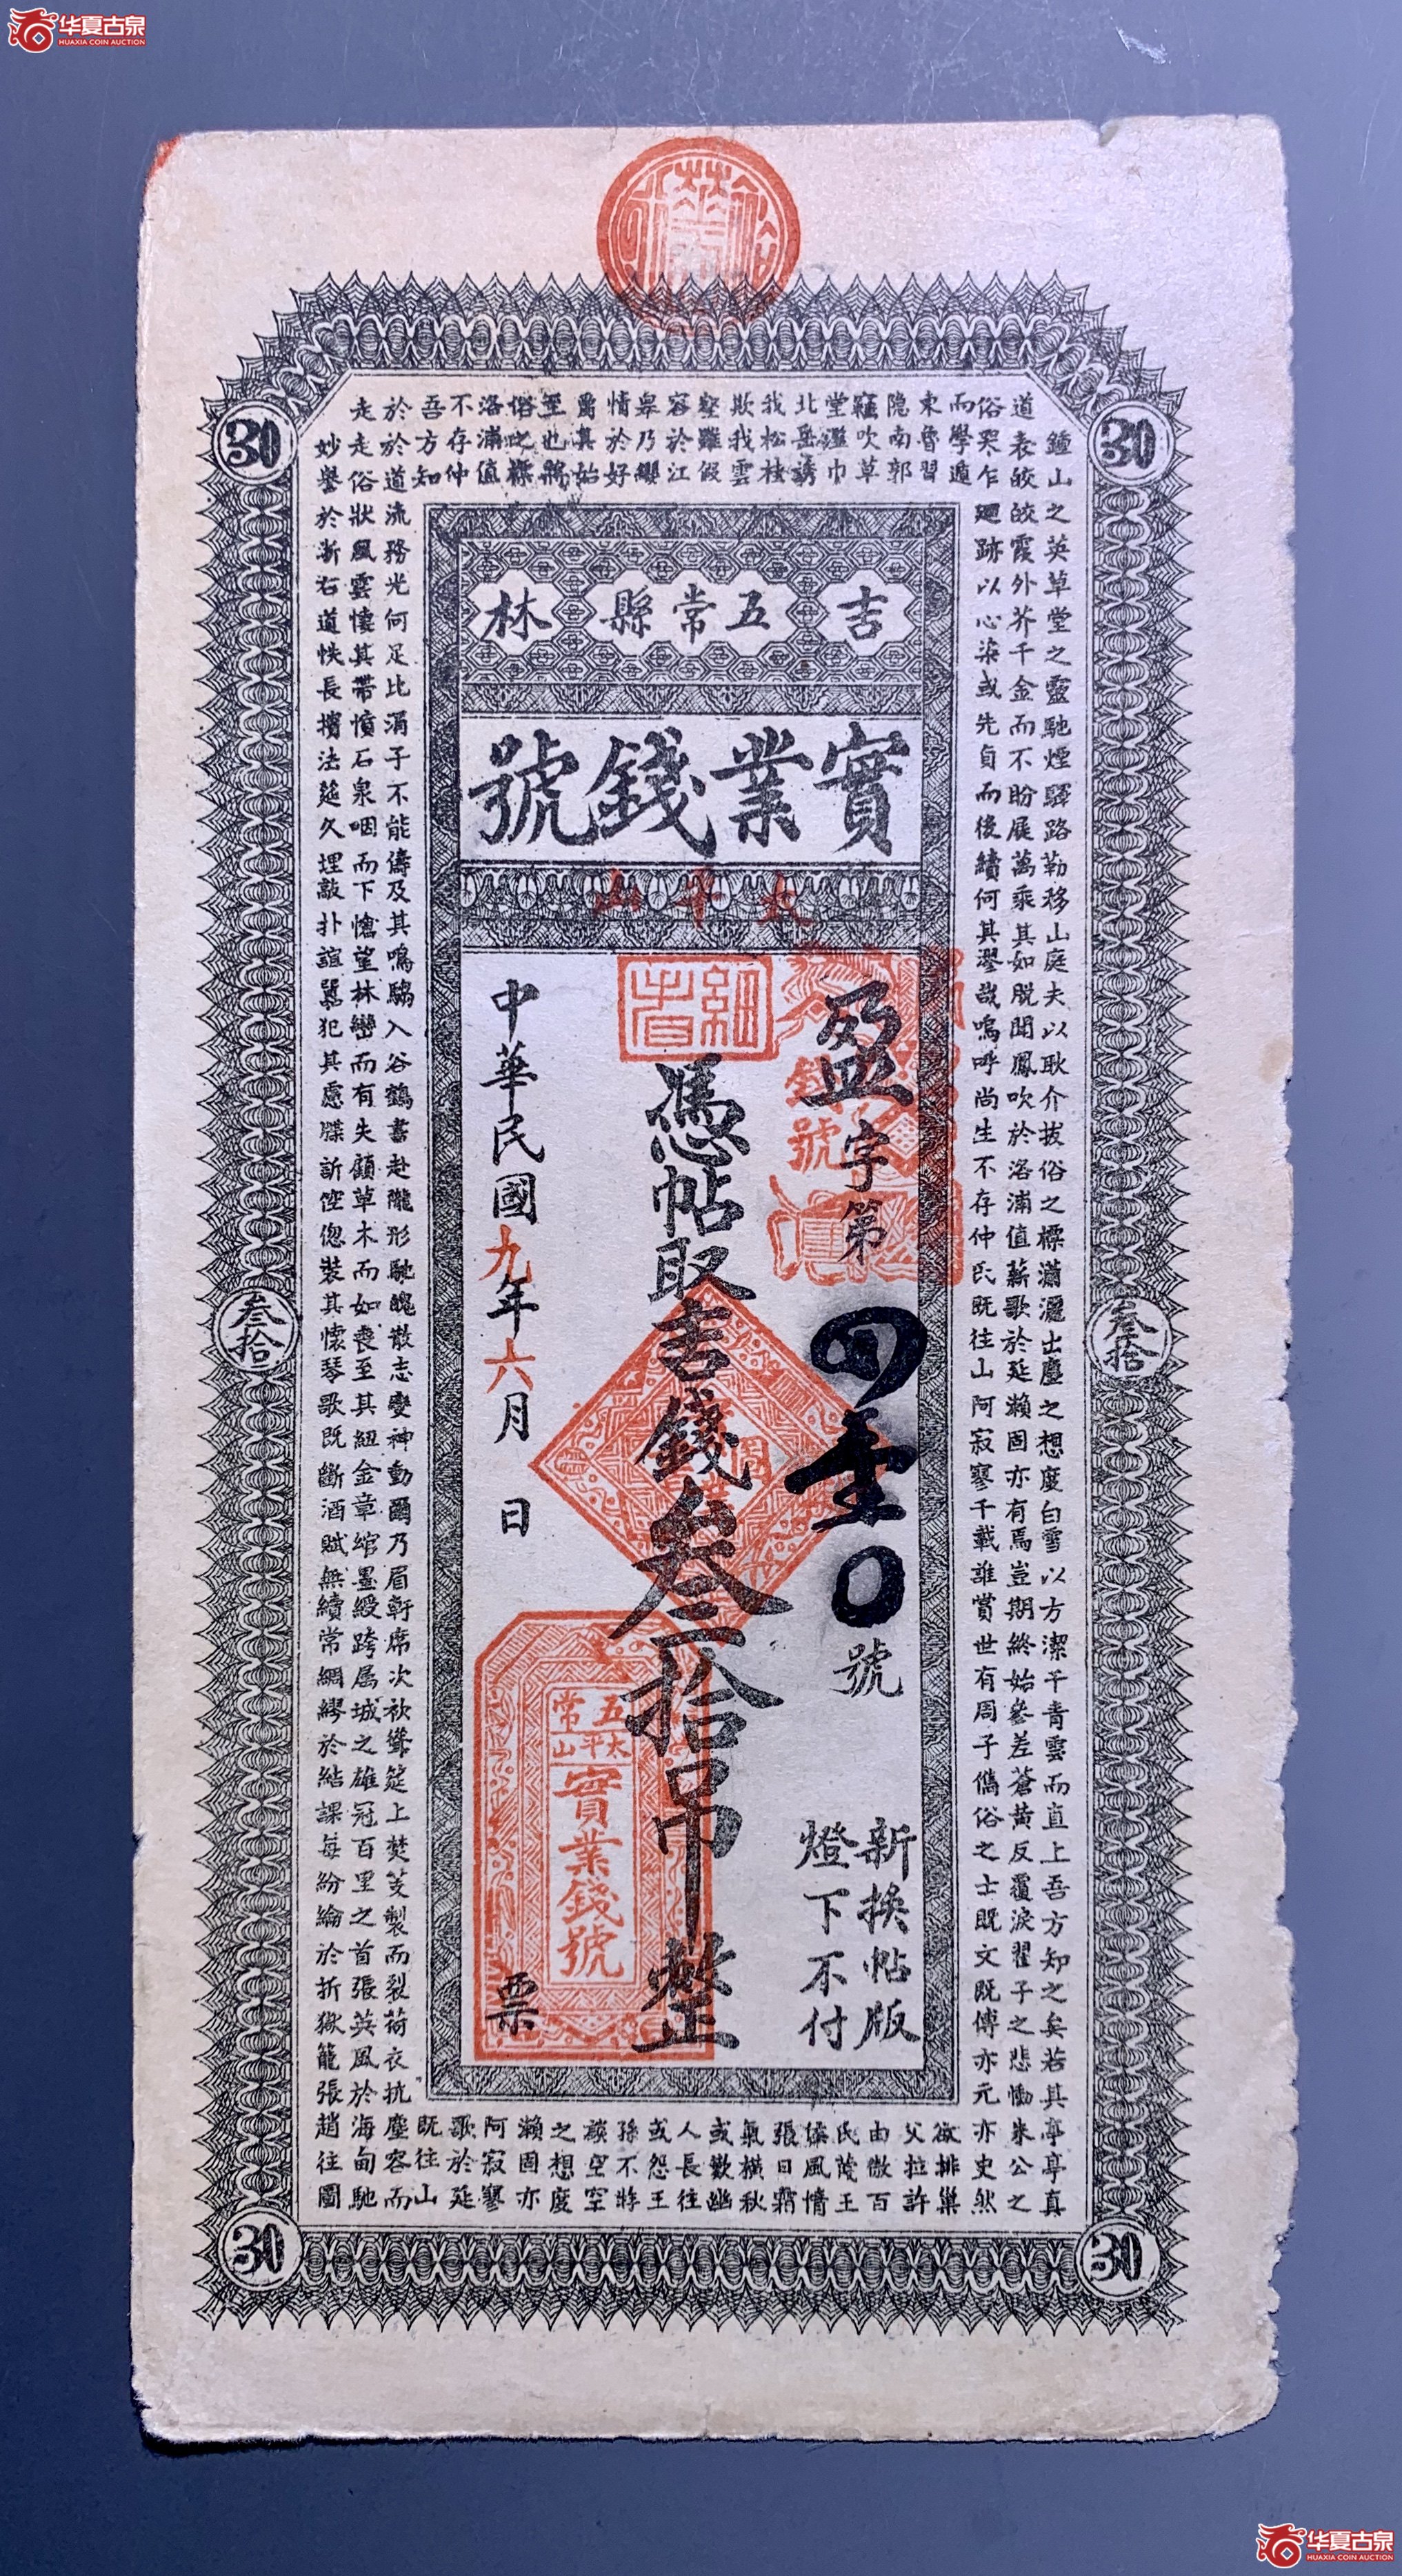 吉五常縣林
實業錢號
太平山
盈字第四壹0號
新換帖版
燈下不付
細者
錢號
憑帖取吉錢叁拾吊整
中華民國九年六月 日
票
五常
太平山
實業錢號
30
30
叁拾
叁拾
30
30
鍾山之英草堂之靈馳煙驛路勒移山庭夫以耿介拔俗之標瀟灑出塵之想度白雪以方潔干青雲而直上吾方知之矣若其亭亭真
道表皎皎霞外芥千金而不盼屣萬乘其如脫聞鳳吹於洛浦值薪歌於延瀨固亦有焉豈期終始參差蒼黃反覆淚翟子之悲慟朱公之
俗哭乍迴跡以心染或先貞而後續何其謬哉嗚呼尚生不存仲氏既往山阿寂寥千載誰賞世有周子儁俗之士既文既博亦元亦史然
而學遁
東魯習
隐南郭
竊吹草
堂濫巾
北岳誘
我松桂
欺我雲
壑雖假
容於江
皋乃纓
情於好
爵其始
至也將
俗之標
洛浦值
不存仲
吾方知
於於道流務光何足比涓子不能儔及其鳴騶入谷鶴書赴隴形馳魄散志變神動爾乃眉軒席次袂聳筵上焚芰製而裂荷衣抗塵容而
走走俗狀風雲悽其帶憤石泉咽而下愴望林巒而有失顧草木而如喪至其紐金章綰墨綬跨屬城之雄冠百里之首張英風於海甸馳
妙譽於浙右道帙長擯法筵久埋敲扑諠囂犯其慮牒訴倥偬裝其懷琴歌既斷酒賦無續常綢繆於結課每紛綸於折獄籠張趙往圖
欲排巢
父拉許
由傲百
氏蔑王
侯風情
張日霜
氣橫秋
或歎幽
人長往
或怨王
孫不將
談空空
之想度
瀨固亦
阿寂寥
歌於延
既往山
华夏古泉
HUAXIA COIN AUCTION
华夏古泉
HUAXIA COIN AUCTION